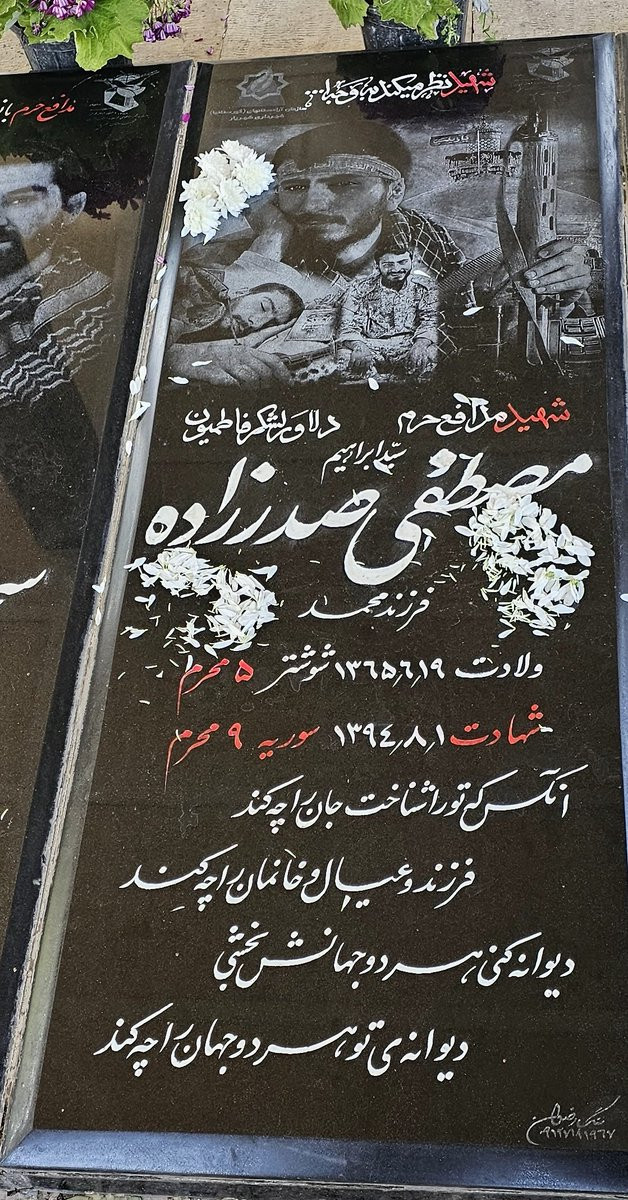 شهید نظر میکند به وجه الله...
سازمان آرامستانهای (آورستانها)
شهرداری شهریار
مدافع حرم
شهید مدافع حرم دلاور لشکر فاطمیون
سید ابراهیم
مصطفی صدرزاده
فرزند محمد
ولادت ۱۳۶۵٫۶٫۱۹ شوشتر ۵ محرم
شهادت ۱۳۹۴٫۸٫۱ سوریه ۹ محرم
آنکس که تو را شناخت جان را چه کند
فرزند و عیال و خانمان را چه کند
دیوانه کنی هر دو جهانش بخشی
دیوانه‌ی تو هر دو جهان را چه کند